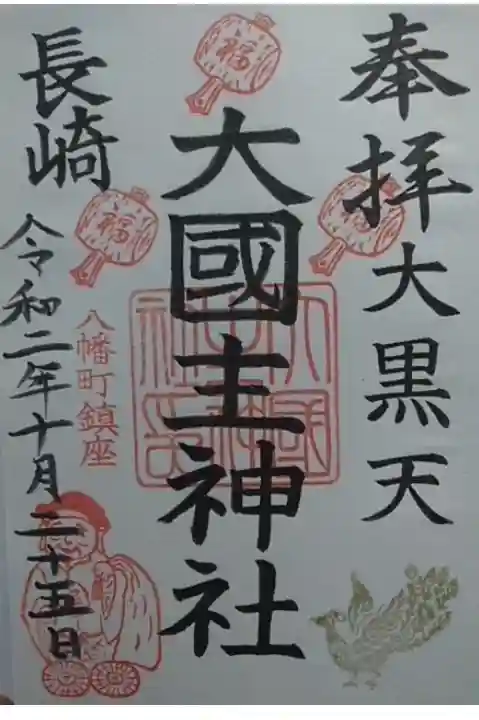 奉拝
大黒天
大國主神社
長崎
八幡町鎮座
令和二年十月二十五日
福
福
福